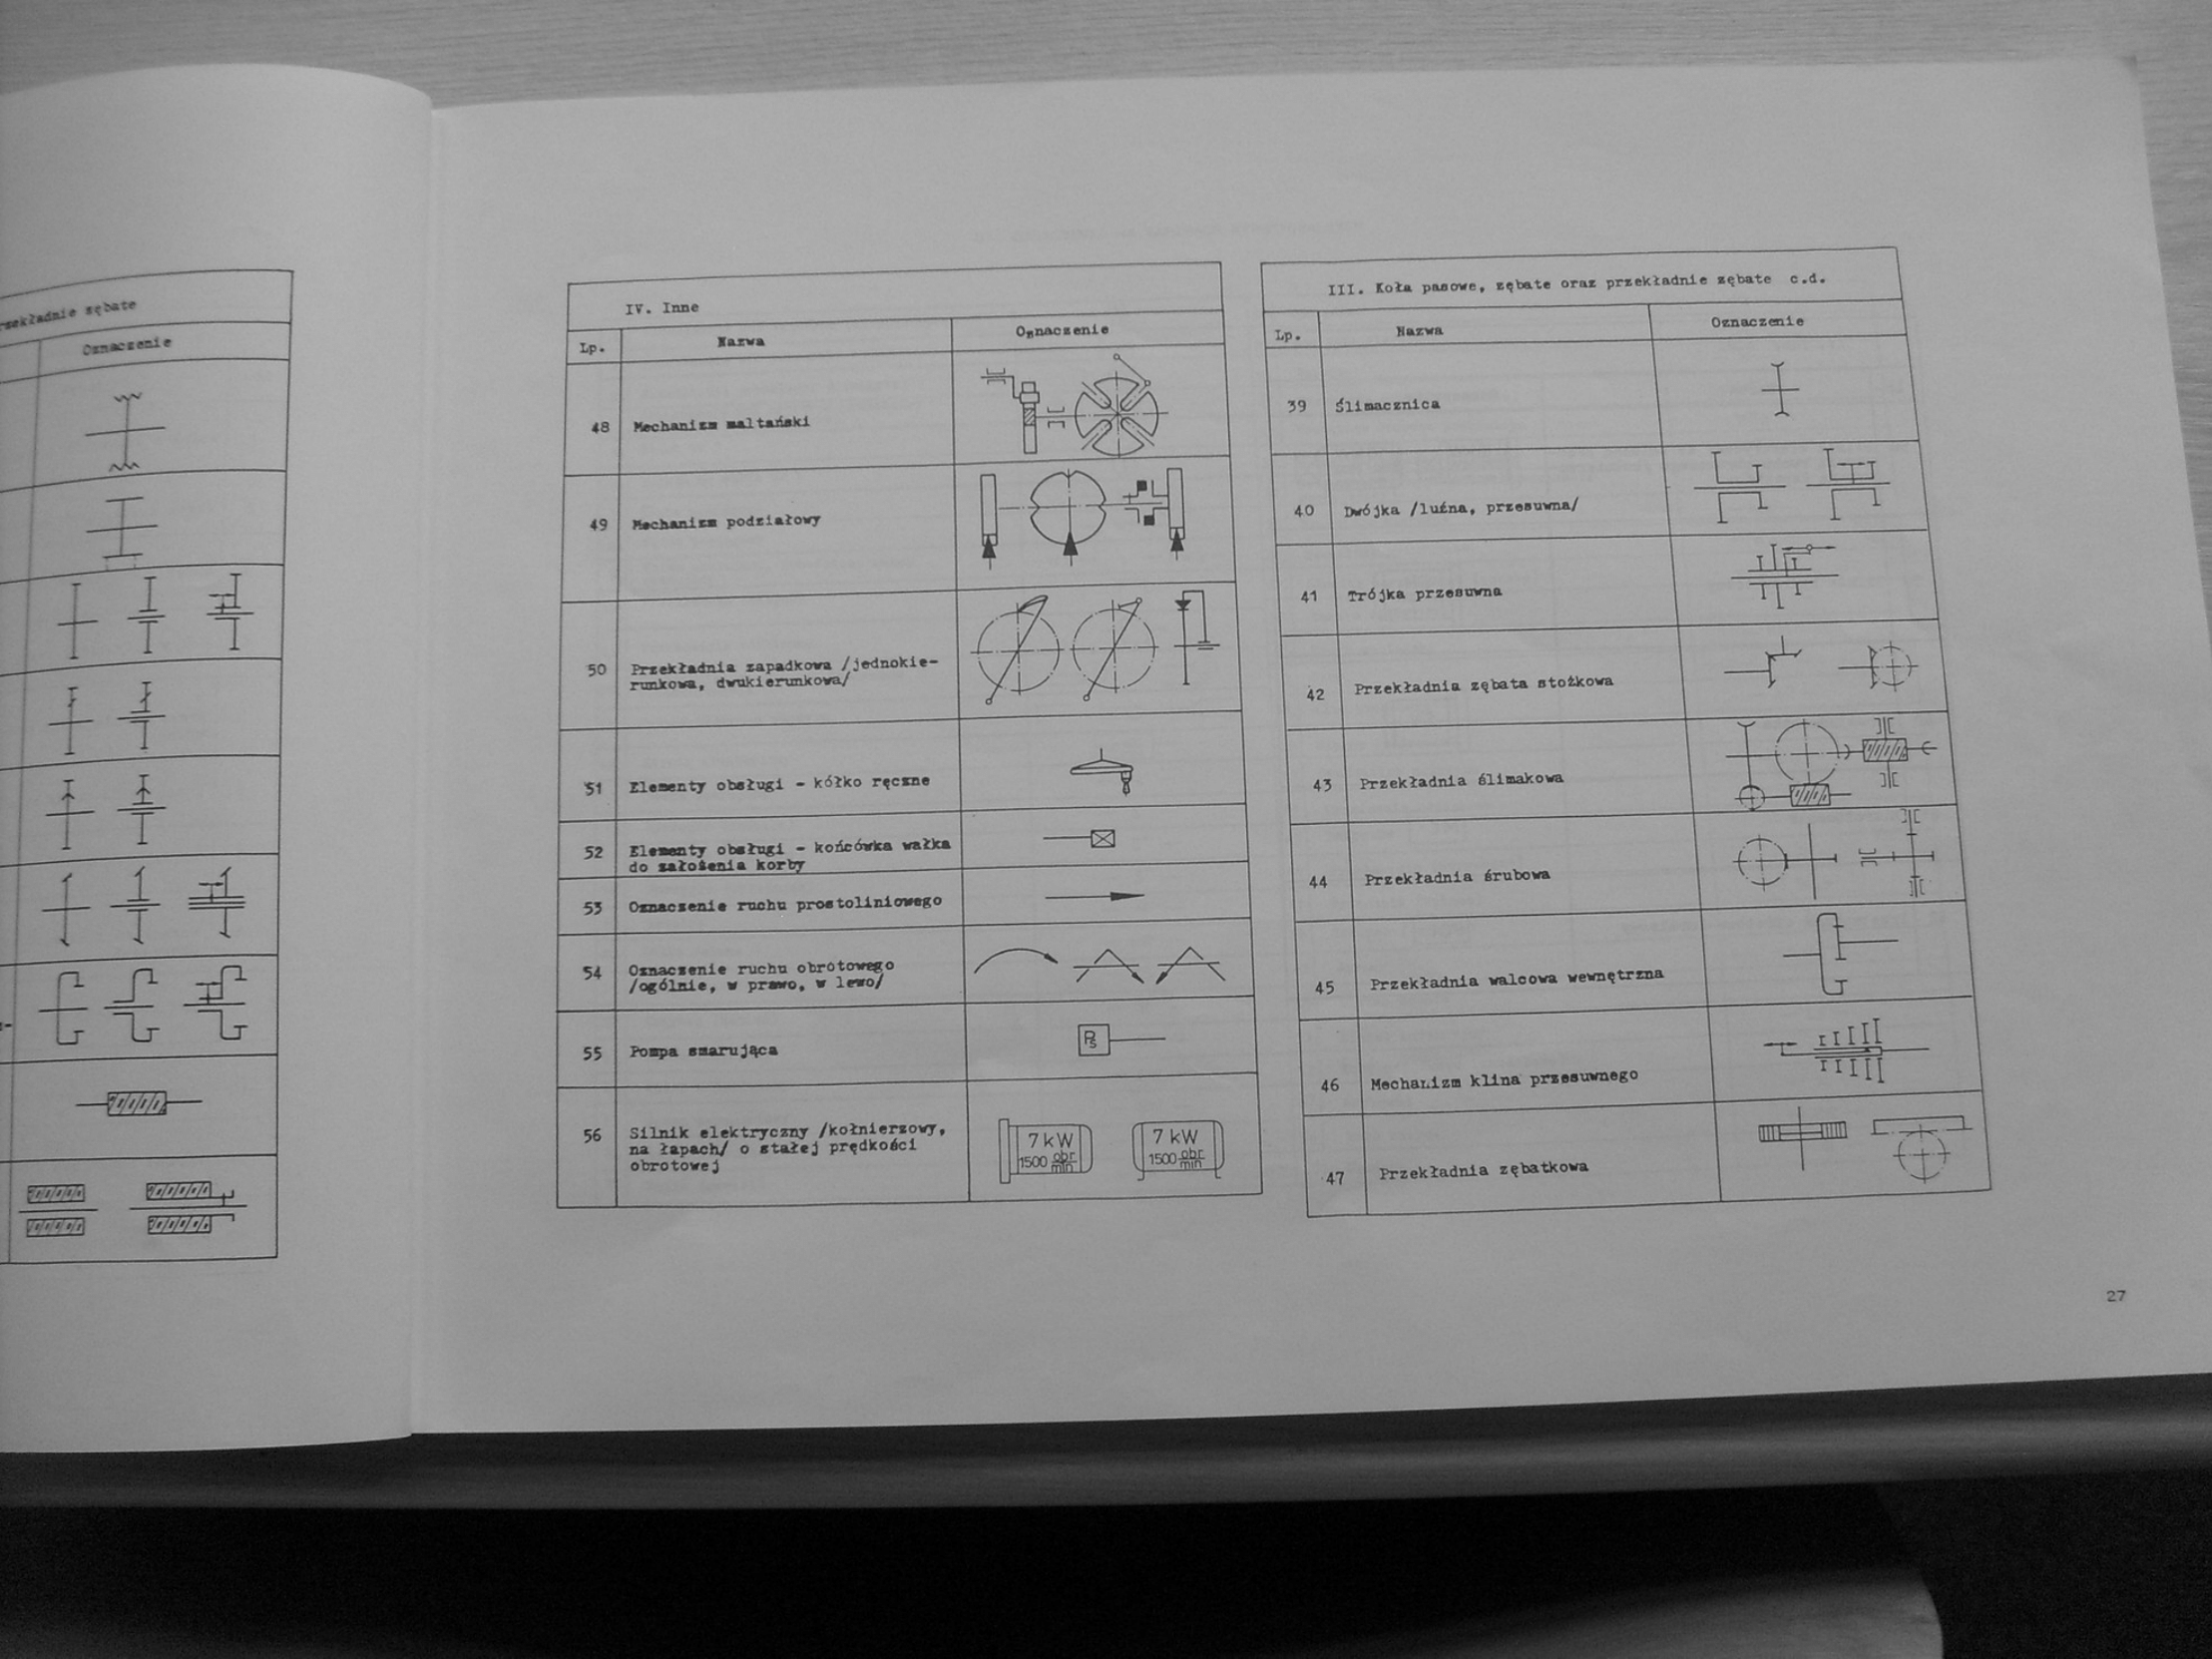 rzekładnie zębate
Oznaczenie
IV. Inne
Lp.
Nazwa
Oznaczenie
48
Mechanizm maltański
49
Mechanizm podziałowy
50
Przekładnia zapadkowa /jednokie-
runkowa, dwukierunkowa/
51
Elementy obsługi - kółko ręczne
52
Elementy obsługi - końcówka wałka
do założenia korby
53
Oznaczenie ruchu prostoliniowego
54
Oznaczenie ruchu obrotowego
/ogólnie, w prawo, w lewo/
55
Pompa smarująca
Ps
56
Silnik elektryczny /kołnierzowy,
na łapach/ o stałej prędkości
obrotowej
7 kW
1500 obr/min
7 kW
1500 obr/min
III. Koła pasowe, zębate oraz przekładnie zębate c.d.
Lp.
Nazwa
Oznaczenie
39
Ślimacznica
40
Dwójka /luźna, przesuwna/
41
Trójka przesuwna
42
Przekładnia zębata stożkowa
43
Przekładnia ślimakowa
44
Przekładnia śrubowa
45
Przekładnia walcowa wewnętrzna
46
Mechanizm klina przesuwnego
47
Przekładnia zębatkowa
27